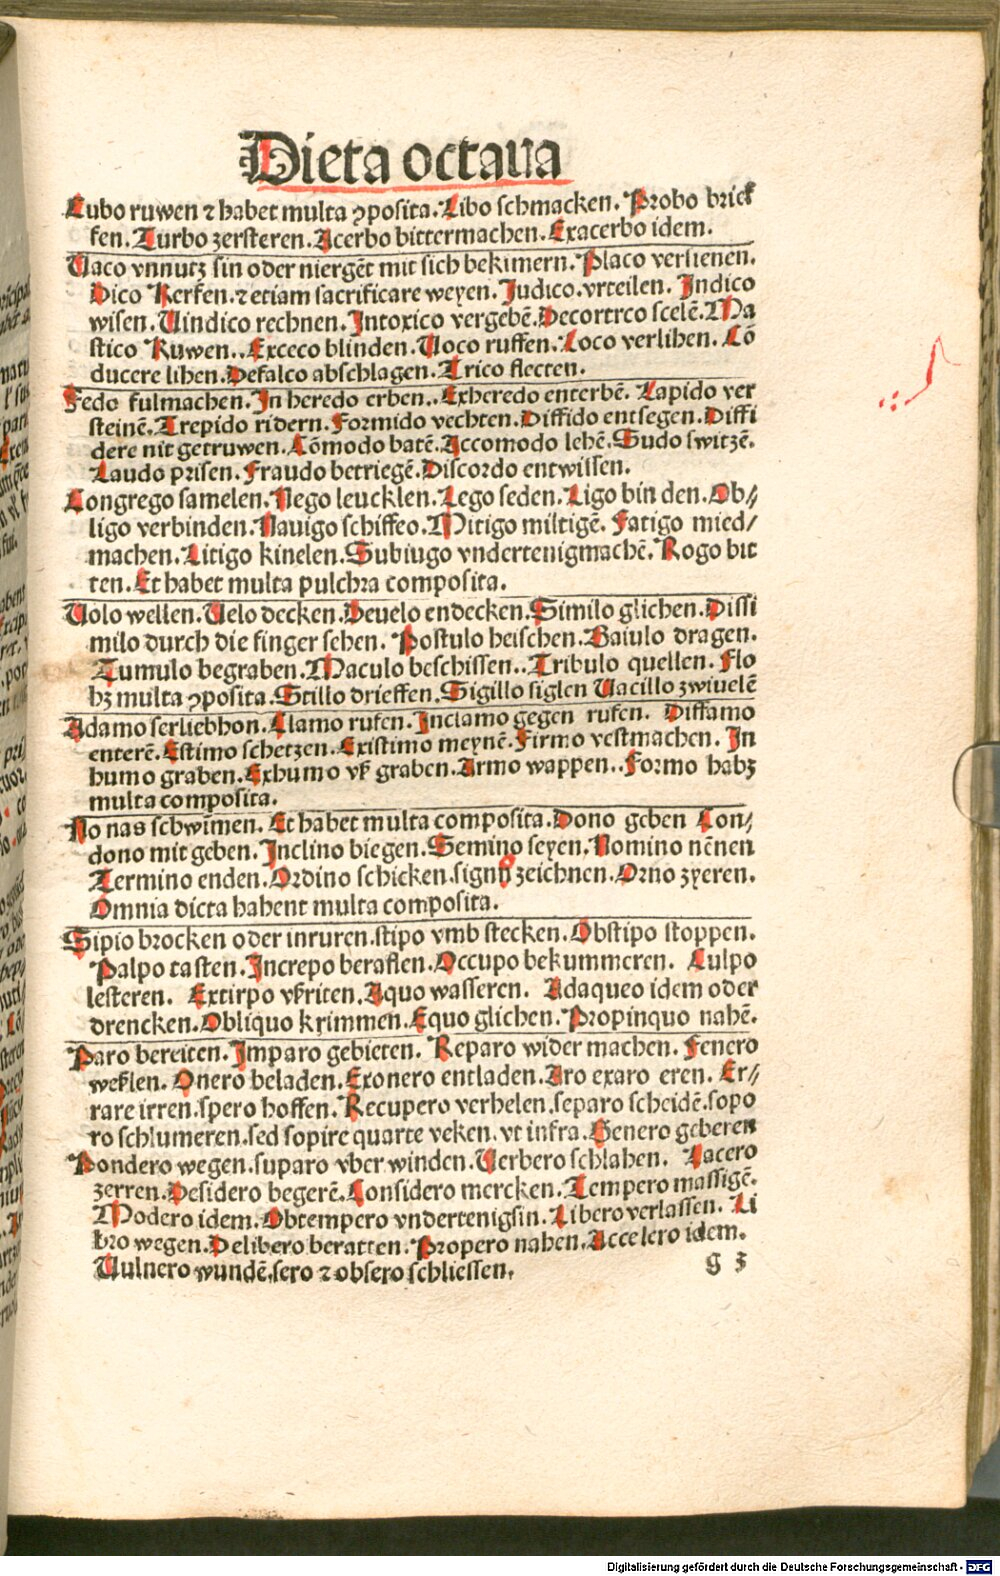 Dieta octaua
Cubo ruwen ⁊ habet multa ꝯposita. Libo schmacken. Probo brick
ken. Turbo zersteren. Acerbo bittermachen. Exacerbo idem.
Uaco vnnutz sin oder niergēt mit sich bekūmern. Placo versienen.
Dico Kerfen. ⁊ etiam sacrificare weyen. Judico. vrteilen. Indico
wisen. Uindico rechnen. Intoxico vergebē. Decortrco scelē. Ma
stico Kuwen.. Exceco blinden. Uoco ruffen. Loco verlihen. Cō
ducere lihen. Defalco abschlagen. Trico flecten.
Fedo fulmachen. In heredo erben.. Exheredo enterbē. Lapido ver
steinē. Trepido ridern. Formido vechten. Diffido entsegen. Diffi
dere nit getruwen. Cōmodo batē. Accomodo lehē. Sudo switzē.
Laudo prisen. Fraudo betriegē. Discordo entwissen.
Congrego samelen. Nego leucklen. Lego seden. Ligo bin den. Ob⸗
ligo verbinden. Nauigo schiffeo. Mitigo miltigē. Fatigo mied⸗
machen. Litigo kinelen. Subiugo vndertenigmachē. Rogo bit
ten. Et habet multa pulchra composita.
Uolo wellen. Uelo decken. Deuelo endecken. Similo glichen. Dissi
milo durch die finger sehen. Postulo heischen. Baiulo dragen.
Tumulo begraben. Maculo beschissen.. Tribulo quellen. Flo
hꝫ multa ꝯposita. Stillo drieffen. Sigillo siglen Uacillo zwiuelē
Adamo serliebhon. Clamo rufen. Inclamo gegen rufen. Diffamo
enterē. Estimo schetzen. Existimo meynē. Firmo vestmachen. In
humo graben. Exhumo vß graben. Armo wappen.. Formo habꝫ
multa composita.
No nas schwimen. Et habet multa composita. Dono geben Con⸗
dono mit geben. Inclino biegen. Semino seyen. Nomino nēnen
Termino enden. Ordino schicken. signo zeichnen. Orno zyeren.
Omnia dicta habent multa composita.
Sipio brocken oder inruren. stipo vmb stecken. Obstipo stoppen.
Palpo tasten. Increpo beraflen. Occupo bekummeren. Culpo
lesteren. Extirpo vßriten. Aquo wasseren. Adaqueo idem oder
drencken. Obliquo krimmen. Equo glichen. Propinquo nahē.
Paro bereiten. Imparo gebieten. Reparo wider machen. Fenero
weßlen. Onero beladen. Exonero entladen. Aro exaro eren. Er⸗
rare irren. spero hoffen. Recupero verhelen. separo scheidē. sopo
ro schlumeren. sed sopire quarte veken. vt infra. Genero geberen
Pondero wegen. suparo vber winden. Uerbero schlahen. Lacero
zerren. Desidero begerē. Considero mercken. Tempero massigē.
Modero idem. Obtempero vndertenigsin. Libero verlassen. Li
bro wegen. Delibero beratten. Propero nahen. Accelero idem.
Uulnero wundē. sero ⁊ obsero schliessen.
g 3
Digitalisierung gefördert durch die Deutsche Forschungsgemeinschaft - DFG